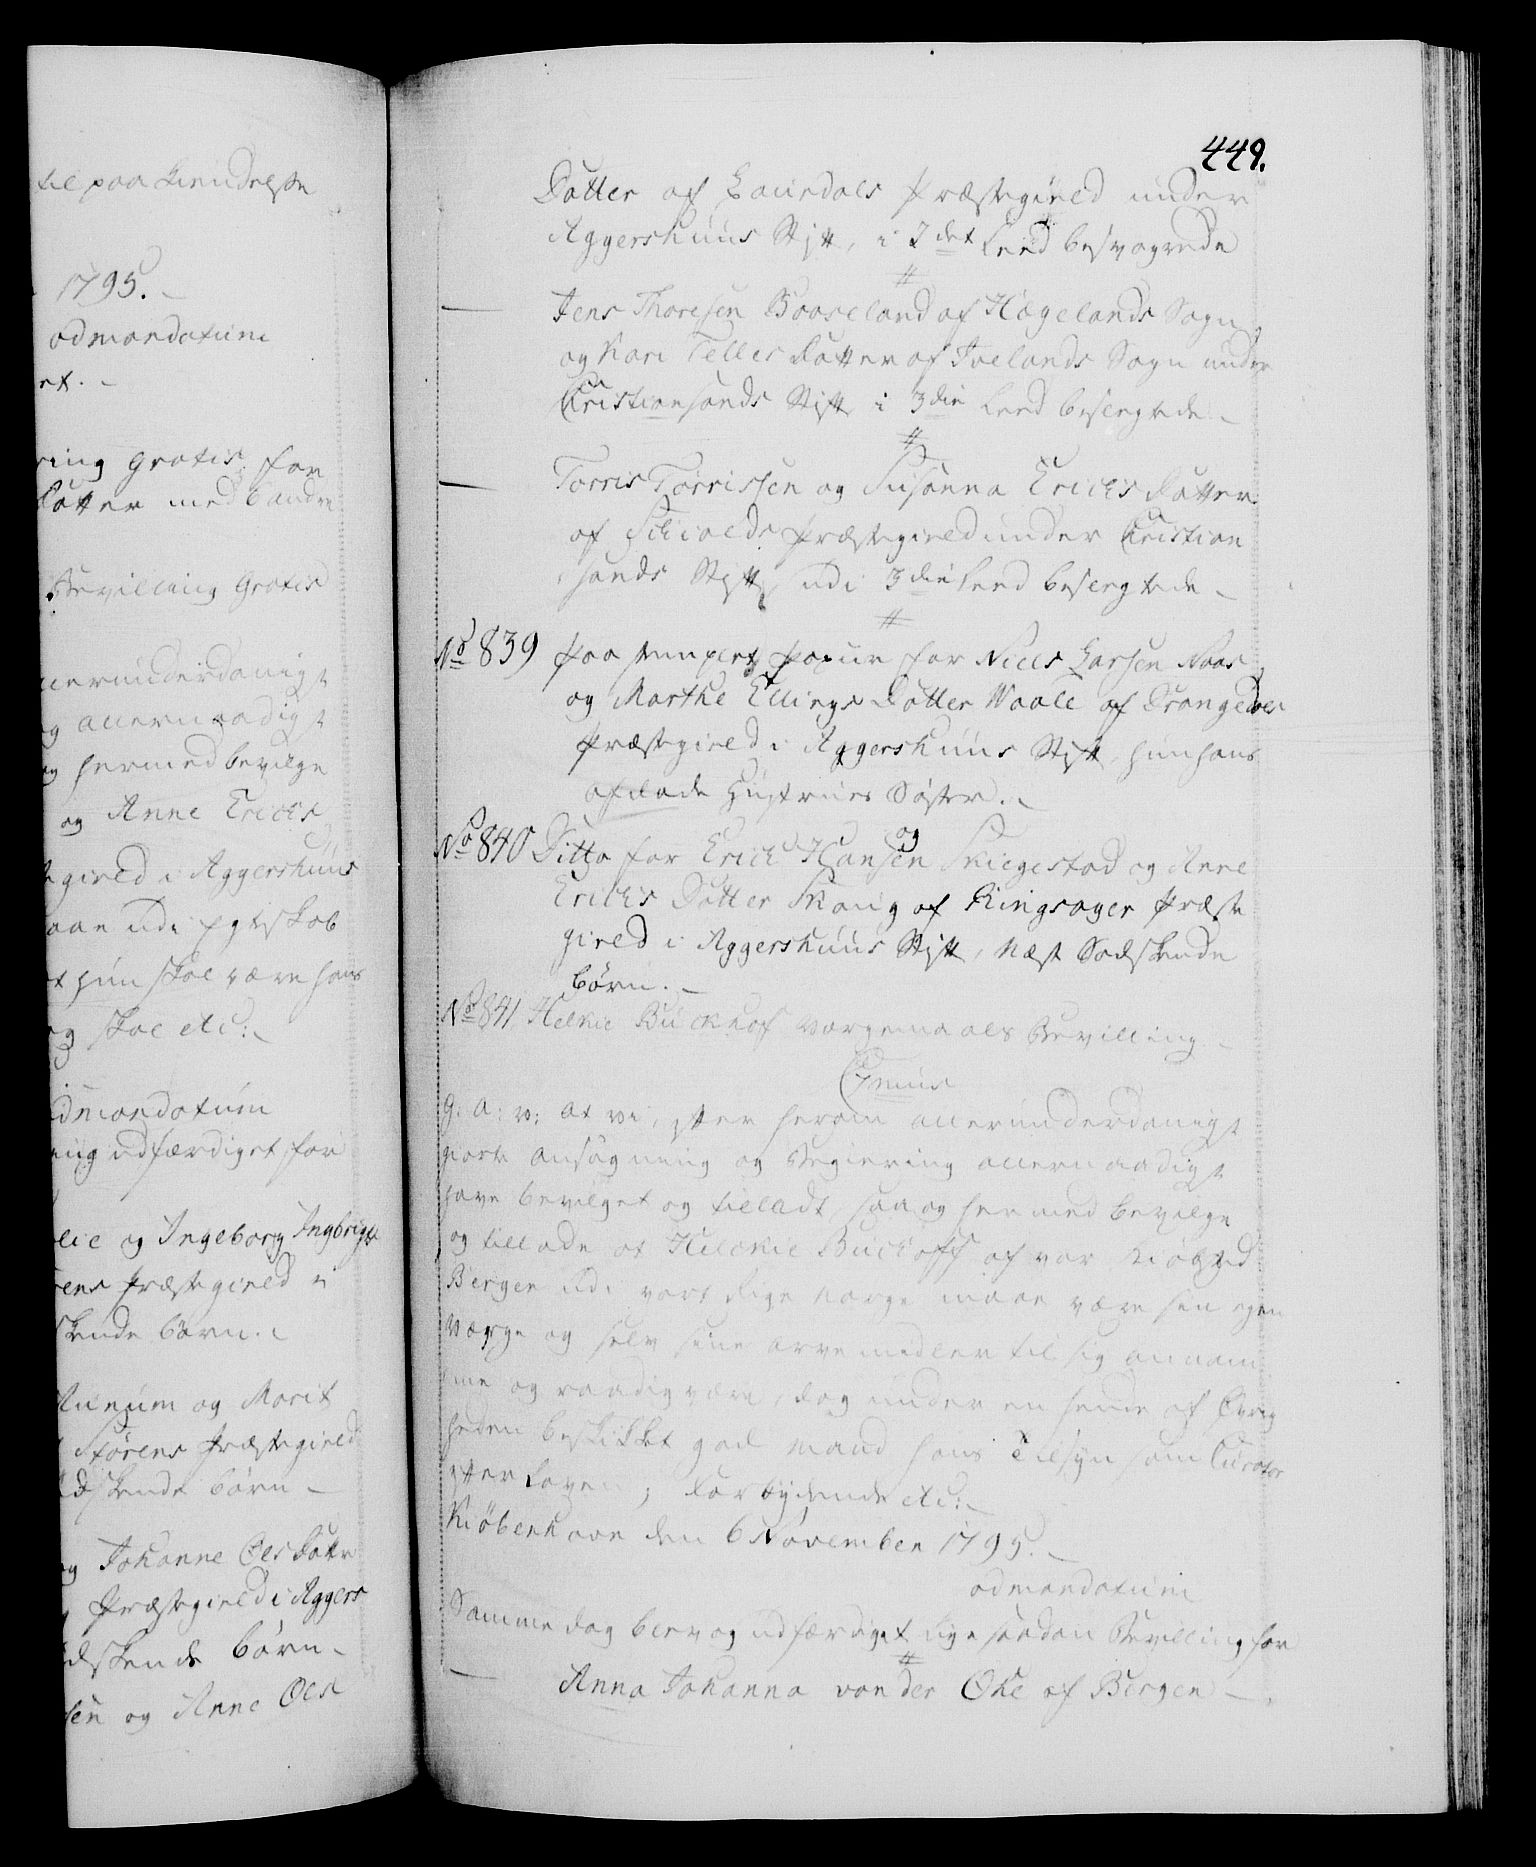 til paa Kiendelse
1795.
admandatum
et.
ring gratis for
Datter med banden
Bevilling Gratis
allerunderdanigst
og allernaadigst
og hermed bevilge
og Anne Erichs
gield i Aggershuus
maae udi Egteskab
at hun skal være hans
og skal etc:
admandatum
ling udfærdiget for
lie og Ingeborg Ingbrigts
rens Præstegield i
skende børn.
og Marit
Størens Præstegield
dskende børn
og Johanne Olsdatter
Præstegield i Aggers
dskende børn
sen og Anne Ols
449.
Datter af Laurdals Præstegield under
Aggershuus Stift, i 2det Leed besvogrede
Jens Thoresen Baaseland af Hægelands Sogn
og Kari Tellefs Datter af Ivelands Sogn under
Christiansands Stift i 3die Leed beslegtede
Torris Torrissen og Susanna Erichs Datter
af Schiolds Præstegield under Christian
sands Stift, udi 3die Leed beslegtede
No 839 paa stemplet Papiir for Niels Larsen Naas
og Marthe Ellings Datter Waale af Drangedals
Præstegield i Aggershuus Stift, hun hans
afdøde Hustrues Søster.
No 840 Ditto for Erich Hansen og Skiegestad og Anne
Erichs Datter Skaug af Ringsager Præste
gield i Aggershuus Stift, Næst Sødskende
børn.
No 841 Helkie Buckhof Vergemaals Bevilling
Gemüs
G: A: V: At vi, efter herom allerunderdanigst
giorte Ansøgning og Begiering allernaadigst
have bevilget og tilladt, saa og hermed bevilge
og tillade at Hilckie Buckhoff af vor Kiøbsted
Bergen udi vort Rige Norge maae være sin egen
Værge og selv sine arve midler til sig annam
me og raadig være, dog under en hende af Øvrig
heden beskikket god Mand hans Tilsyn som Curator
efter Loven; Forbydende etc:
Kiøbenhavn den 6 November 1795.
admandatum
Samme dag blev og udfærdiget lige saadan Bevilling for
Anna Johanna von der Ohe af Bergen